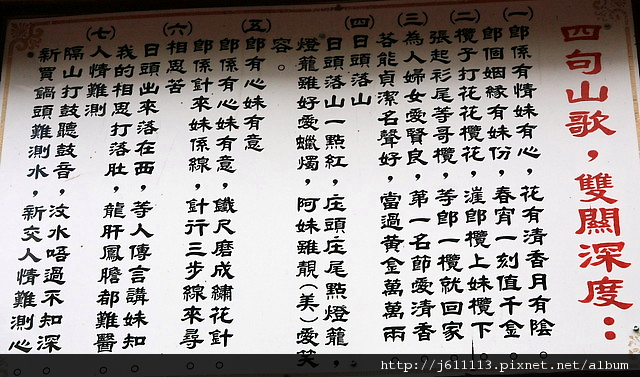 四句山歌，雙關深度：
(一)
郎係有情妹有心，花有清香月有陰。
郎個姻緣有妹份，春宵一刻值千金。
(二)
欖子打花花欖花，郎欖上妹欖下。
張起彩尾等哥欖，等郎一欖就回家。
(三)
為人婦女愛賢良，第一名節愛清香。
若能貞潔名聲好，當過黃金萬萬兩。
(四)
日頭落山
日頭落山一點紅，庄頭庄尾點燈籠，
燈籠雖好愛蠟燭，阿妹雖靚(美)愛笑
容。
(五)
郎有心妹有意
郎係有心妹有意，鐵尺磨成繡花針。
郎係針來妹係線，針行三步線來尋。
(六)
相思苦
日頭出來落在西，等人傳言講妹知。
我的相思打落肚，龍肝鳳膽都難醫。
(七)
人情難測
隔山打鼓聽鼓音，汶水唔過不知深。
新買鍋頭難測水，新交人情難測心。
http://j611113.pixnet.net/album